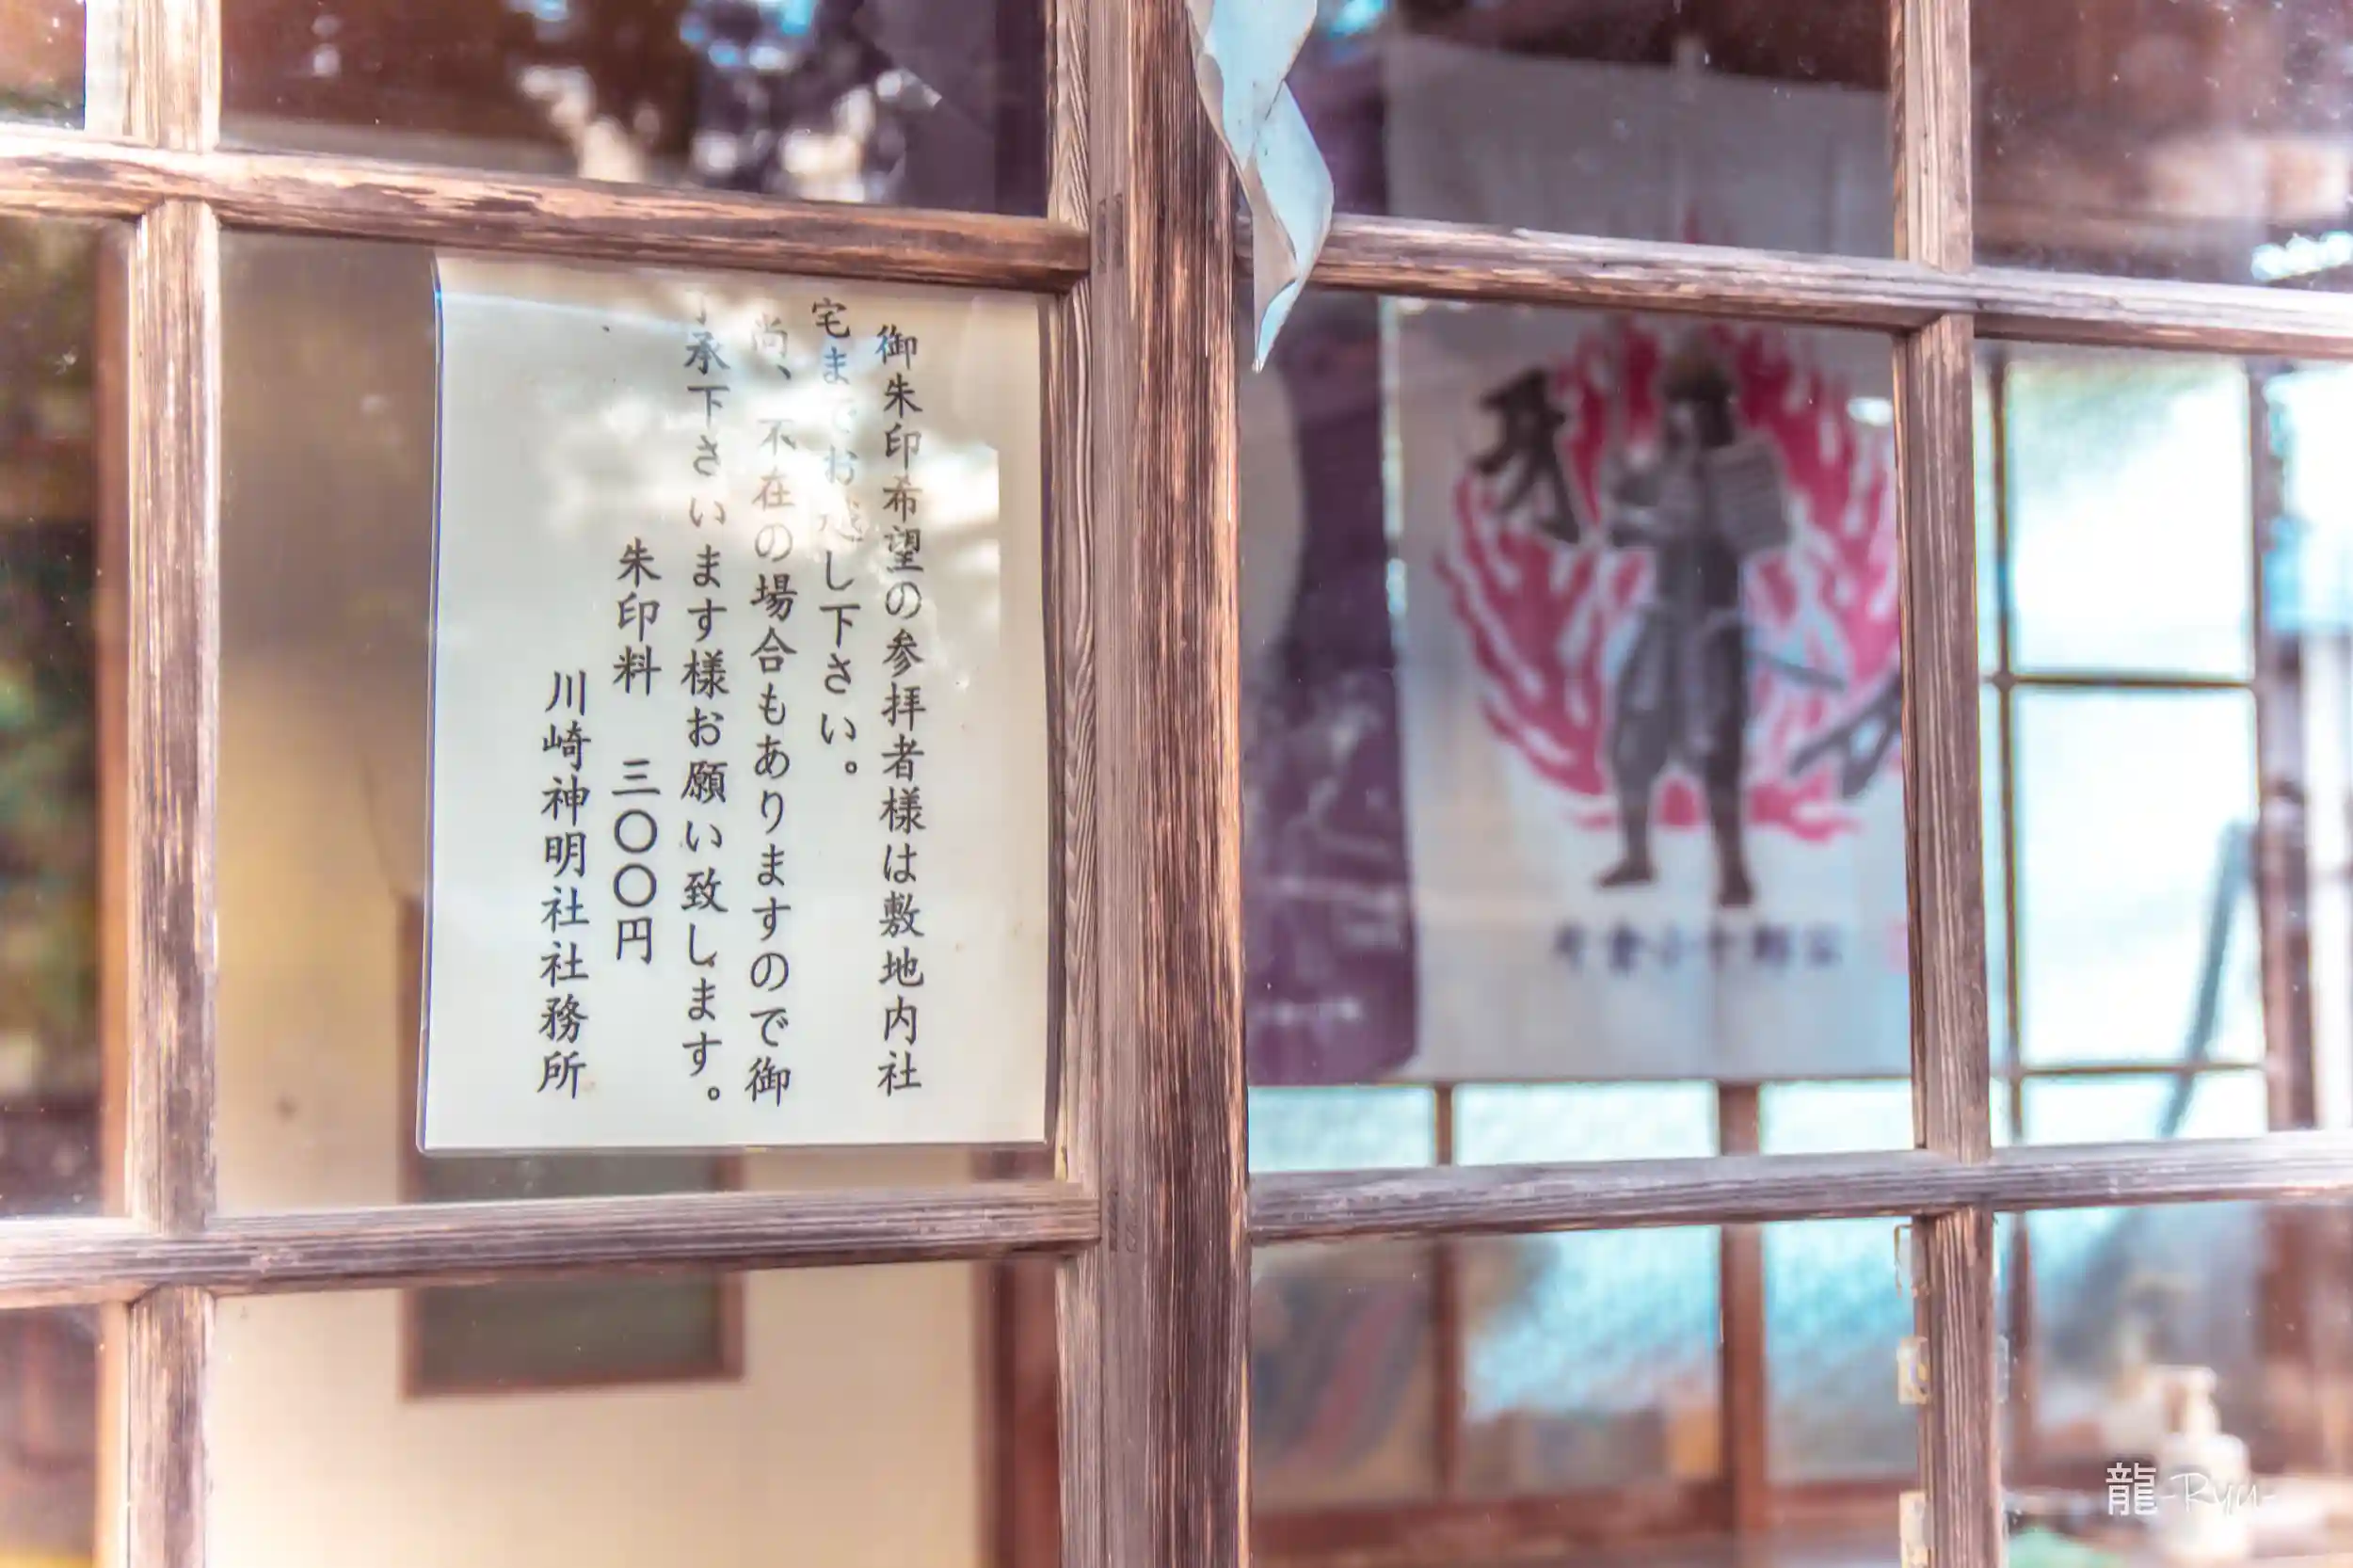 御朱印希望の参拝者様は敷地内社
宅までお越し下さい。
尚、不在の場合もありますので御
了承下さいます様お願い致します。
朱印料 三〇〇円
川崎神明社社務所
片倉小十郎公
龍-Ryu-